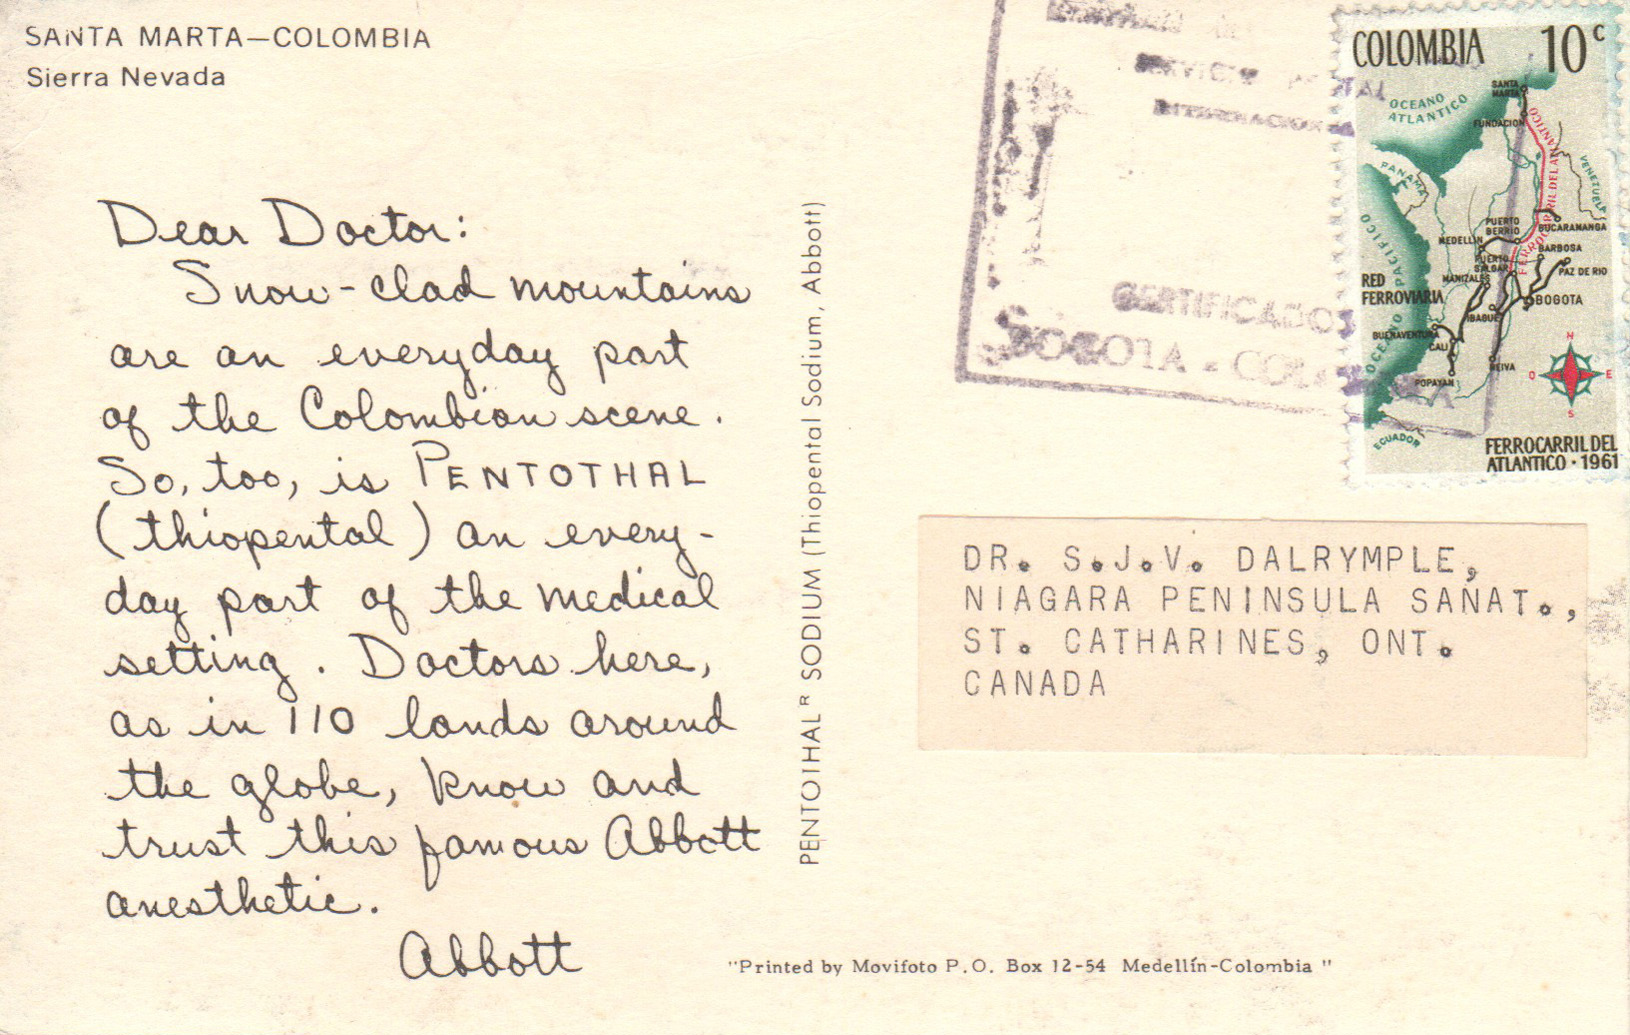 SANTA MARTA—COLOMBIA
Sierra Nevada
Dear Doctor:
Snow-clad mountains
are an everyday part
of the Colombian scene.
So, too, is PENTOTHAL
(thiopental) an every-
day part of the medical
setting. Doctors here,
as in 110 lands around
the globe, know and
trust this famous Abbott
anesthetic.
Abbott
PENTOTHAL® SODIUM (Thiopental Sodium, Abbott)
"Printed by Movifoto P.O. Box 12-54 Medellín-Colombia "
CERTIFICADOS
BOGOTA - COL
COLOMBIA 10c
SANTA
MARTA
OCEANO
ATLANTICO
FUNDACION
FERROCARRIL DEL ATLANTICO
PANAMA
VENEZUELA
OCEANO PACIFICO
PUERTO
BERRIO
BUCARAMANGA
MEDELLIN
BARBOSA
PUERTO
SALGAR
PAZ DE RIO
MANIZALES
RED
FERROVIARIA
BOGOTA
IBAGUE
BUENAVENTURA
CALI
NEIVA
POPAYAN
N
O E
S
ECUADOR
FERROCARRIL DEL
ATLANTICO · 1961
DR. S.J.V. DALRYMPLE,
NIAGARA PENINSULA SANAT.,
ST. CATHARINES, ONT.
CANADA